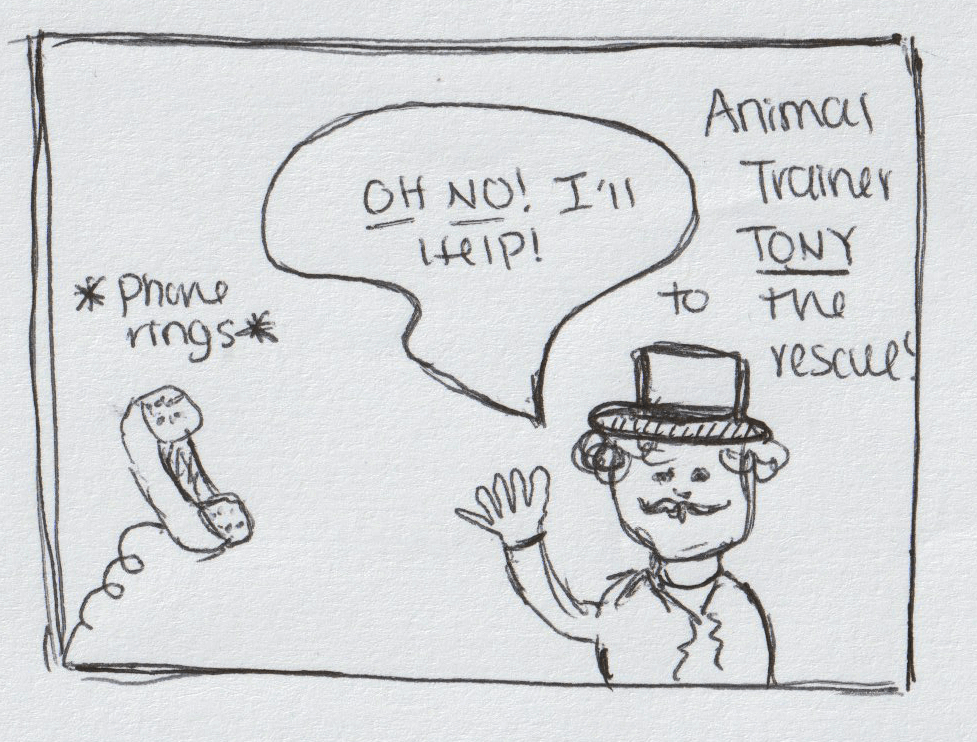 *phone
rings*
OH NO! I'll
HElP!
Animal
Trainer
TONY
to the
rescue!